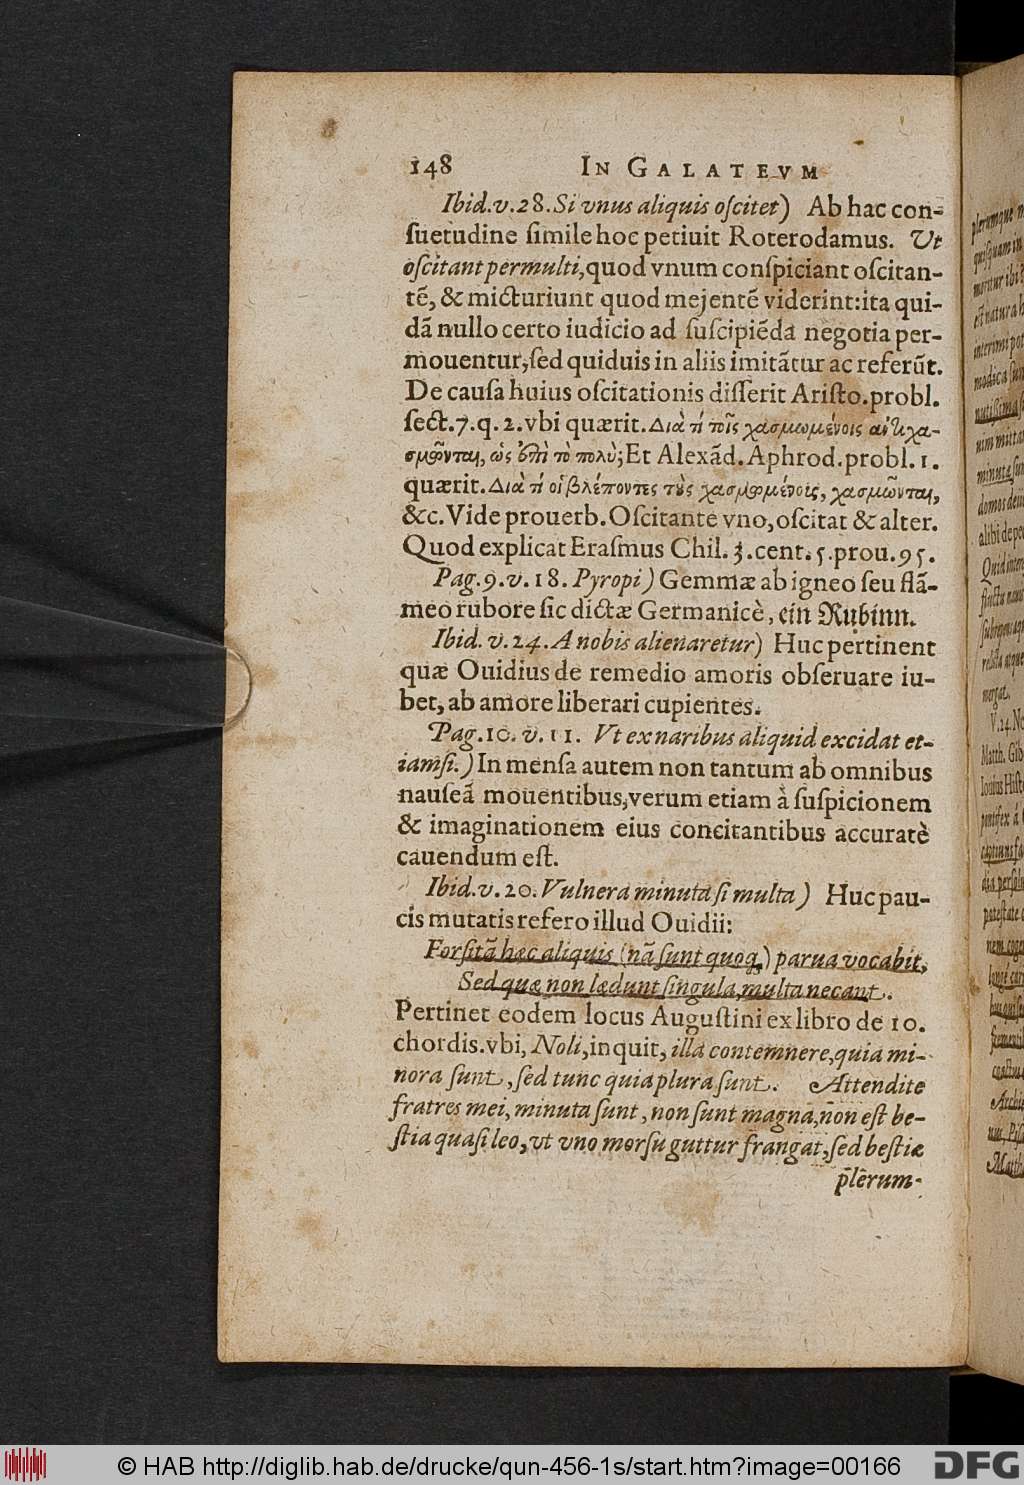 148 IN GALATEVM
Ibid.v.28.Si vnus aliquis oſcitet) Ab hac con-
ſuetudine ſimile hoc petiuit Roterodamus. Vt
oſcitant permulti, quod vnum conſpiciant oſcitan-
tē, & micturiunt quod mejentē viderint: ita qui-
dā nullo certo iudicio ad ſuſcipiēda negotia per-
mouentur, ſed quiduis in aliis imitātur ac referūt.
De cauſa huius oſcitationis diſſerit Ariſto. probl.
ſect.7.q.2.vbi quærit. Διὰ τί τοῖς χασμωμένοις ἀντιχα-
σμῶνται, ὡς ἐπὶ τὸ πολὺ; Et Alexād. Aphrod. probl. 1.
quærit. Διὰ τί οἱ βλέποντες τοὺς χασμωμένοις, χασμῶνται,
&c. Vide prouerb. Oſcitante vno, oſcitat & alter.
Quod explicat Eraſmus Chil. 3. cent. 5. prou. 95.
Pag.9.v.18. Pyropi) Gemmæ ab igneo ſeu flā-
meo rubore ſic dictæ Germanicè, ein Rubinn.
Ibid. v. 24. A nobis alienaretur) Huc pertinent
quæ Ouidius de remedio amoris obſeruare iu-
bet, ab amore liberari cupientes.
Pag.10.v.11. Vt ex naribus aliquid excidat et-
iamſi.) In menſa autem non tantum ab omnibus
nauſeā mouentibus, verum etiam à ſuſpicionem
& imaginationem eius concitantibus accuratè
cauendum eſt.
Ibid.v.20. Vulnera minuta ſi multa) Huc pau-
cis mutatis refero illud Ouidii:
Forſitā hæc aliquis (nā ſunt quoq;) parua vocabit,
Sed quæ non lædunt ſingula, multa necant.
Pertinet eodem locus Auguſtini ex libro de 10.
chordis. vbi, Noli, inquit, illa contemnere, quia mi-
nora ſunt, ſed tunc quia plura ſunt. Attendite
fratres mei, minuta ſunt, non ſunt magna, non eſt be-
ſtia quaſi leo, vt vno morſu guttur frangat, ſed beſtiæ
plerum-
© HAB http://diglib.hab.de/drucke/qun-456-1s/start.htm?image=00166
DFG